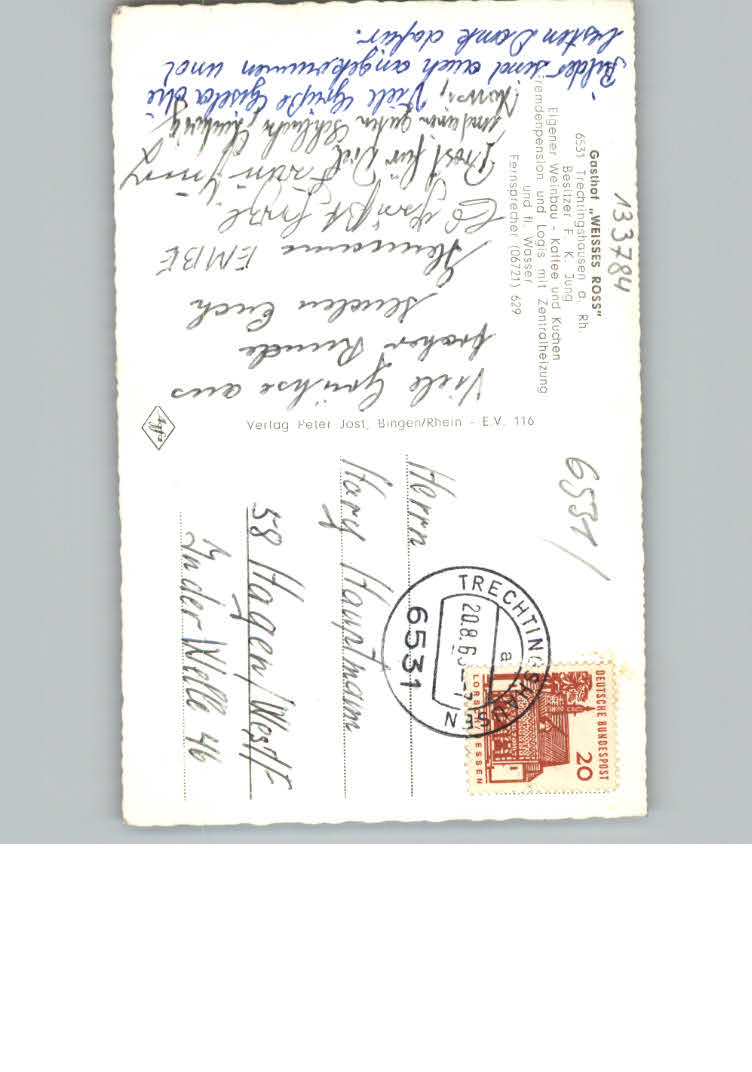 Gasthof „WEISSES ROSS"
6531 Trechtingshausen a. Rh.
Besitzer F. K. Jung
Eigener Weinbau - Kaffee und Kuchen
Fremdenpension und Logis mit Zentralheizung
und fl. Wasser
Fernsprecher (06721) 629
133784
Viele Grühse aus
froher Runde
senden Euch
Hermann EMBE
Es grüßt
Prost für Dich
und einen guten Schluck,
Viele Grüße Gisela
Bilder sind auch angekommen und
besten Dank dafür.
Verlag Peter Jost, Bingen/Rhein - E.V. 116
Agfa
6531
DEUTSCHE BUNDESPOST
20
LORSCH HESSEN
TRECHTINGSHAUSEN
20.8.6
a
6531
Herrn
Harry Hauptmann
58 Hagen/Westf
In der Welle 46